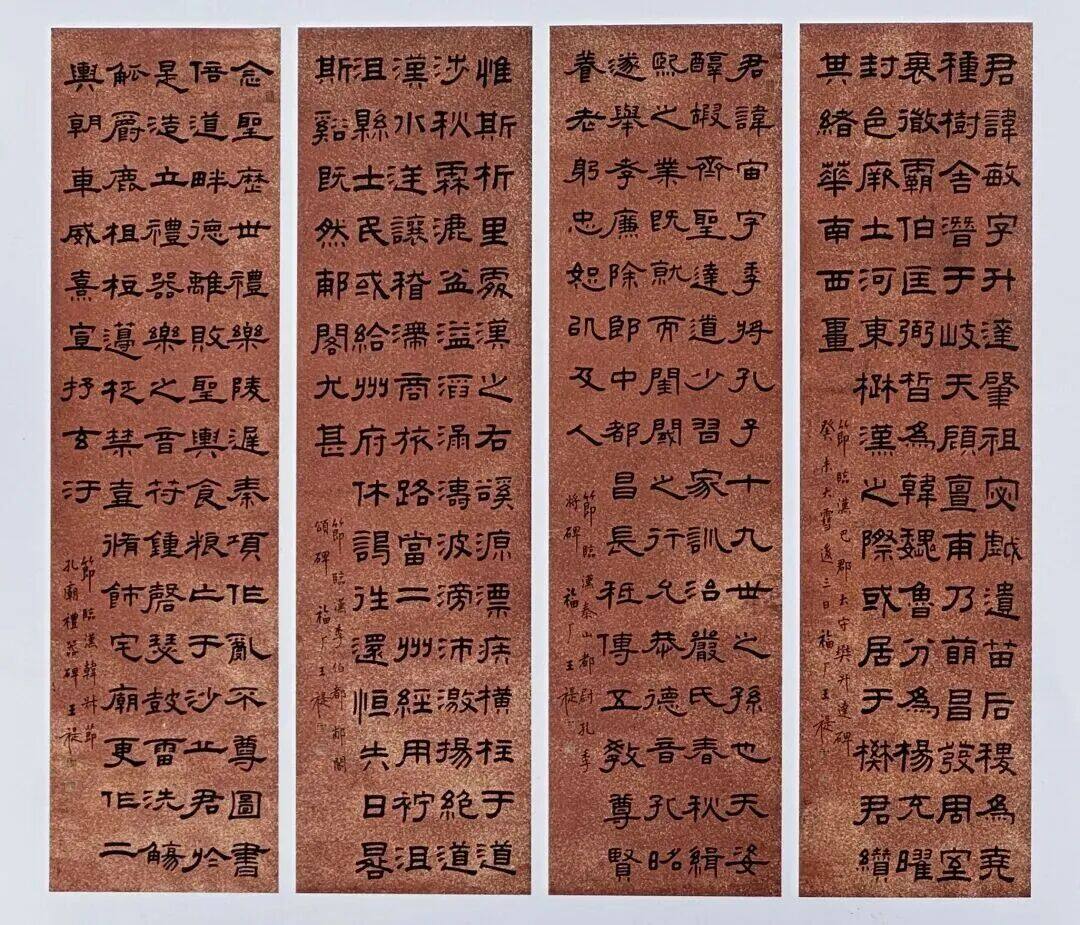 君諱敏字升達肇祖宓戲遺苗后稷為堯
種樹舍潛于岐天顧亶甫乃萌昌發周室
衰微霸伯匡弼晳為韓魏魯分為楊充曜
封邑厥土河東楙漢之際或居于樊君纘
其緒華南西畺
節臨漢巴郡太守樊升達碑
癸未大雪後三日福厂王禔
君諱宙字季將孔子十九世之孫也天姿
醇嘏齊聖達道少習家訓治嚴氏春秋緝
熙之業既就而閨閾之行允恭德音孔昭
遂舉孝廉除郎中都昌長祗傳五教尊賢
養老躬忠恕以及人
節臨漢泰山都尉孔季
將碑 福厂王禔
惟斯析里處漢之右谿源漂疾橫柱于道
涉秋霖漉盆溢滔涌濤波滂沛激揚絕道
漢水逆讓稽滯商旅路當二州經用柠沮
沮縣士民或給州府休謁往還恒失日晷
斯谿既然郙閣尤甚
節臨漢李伯都郙閣
頌碑 福厂王禔
念聖歷世禮樂陵遲秦項作亂不尊圖書
倍道畔德離敗聖輿食粮亡于沙丘君於
是造立禮器樂之音符鍾磬瑟鼓雷洗觴
觚爵鹿柤桓籩柉禁壺脩飾宅廟更作二
輿朝車威熹宣抒玄汙
節臨漢韓叔節
孔廟禮器碑 王禔